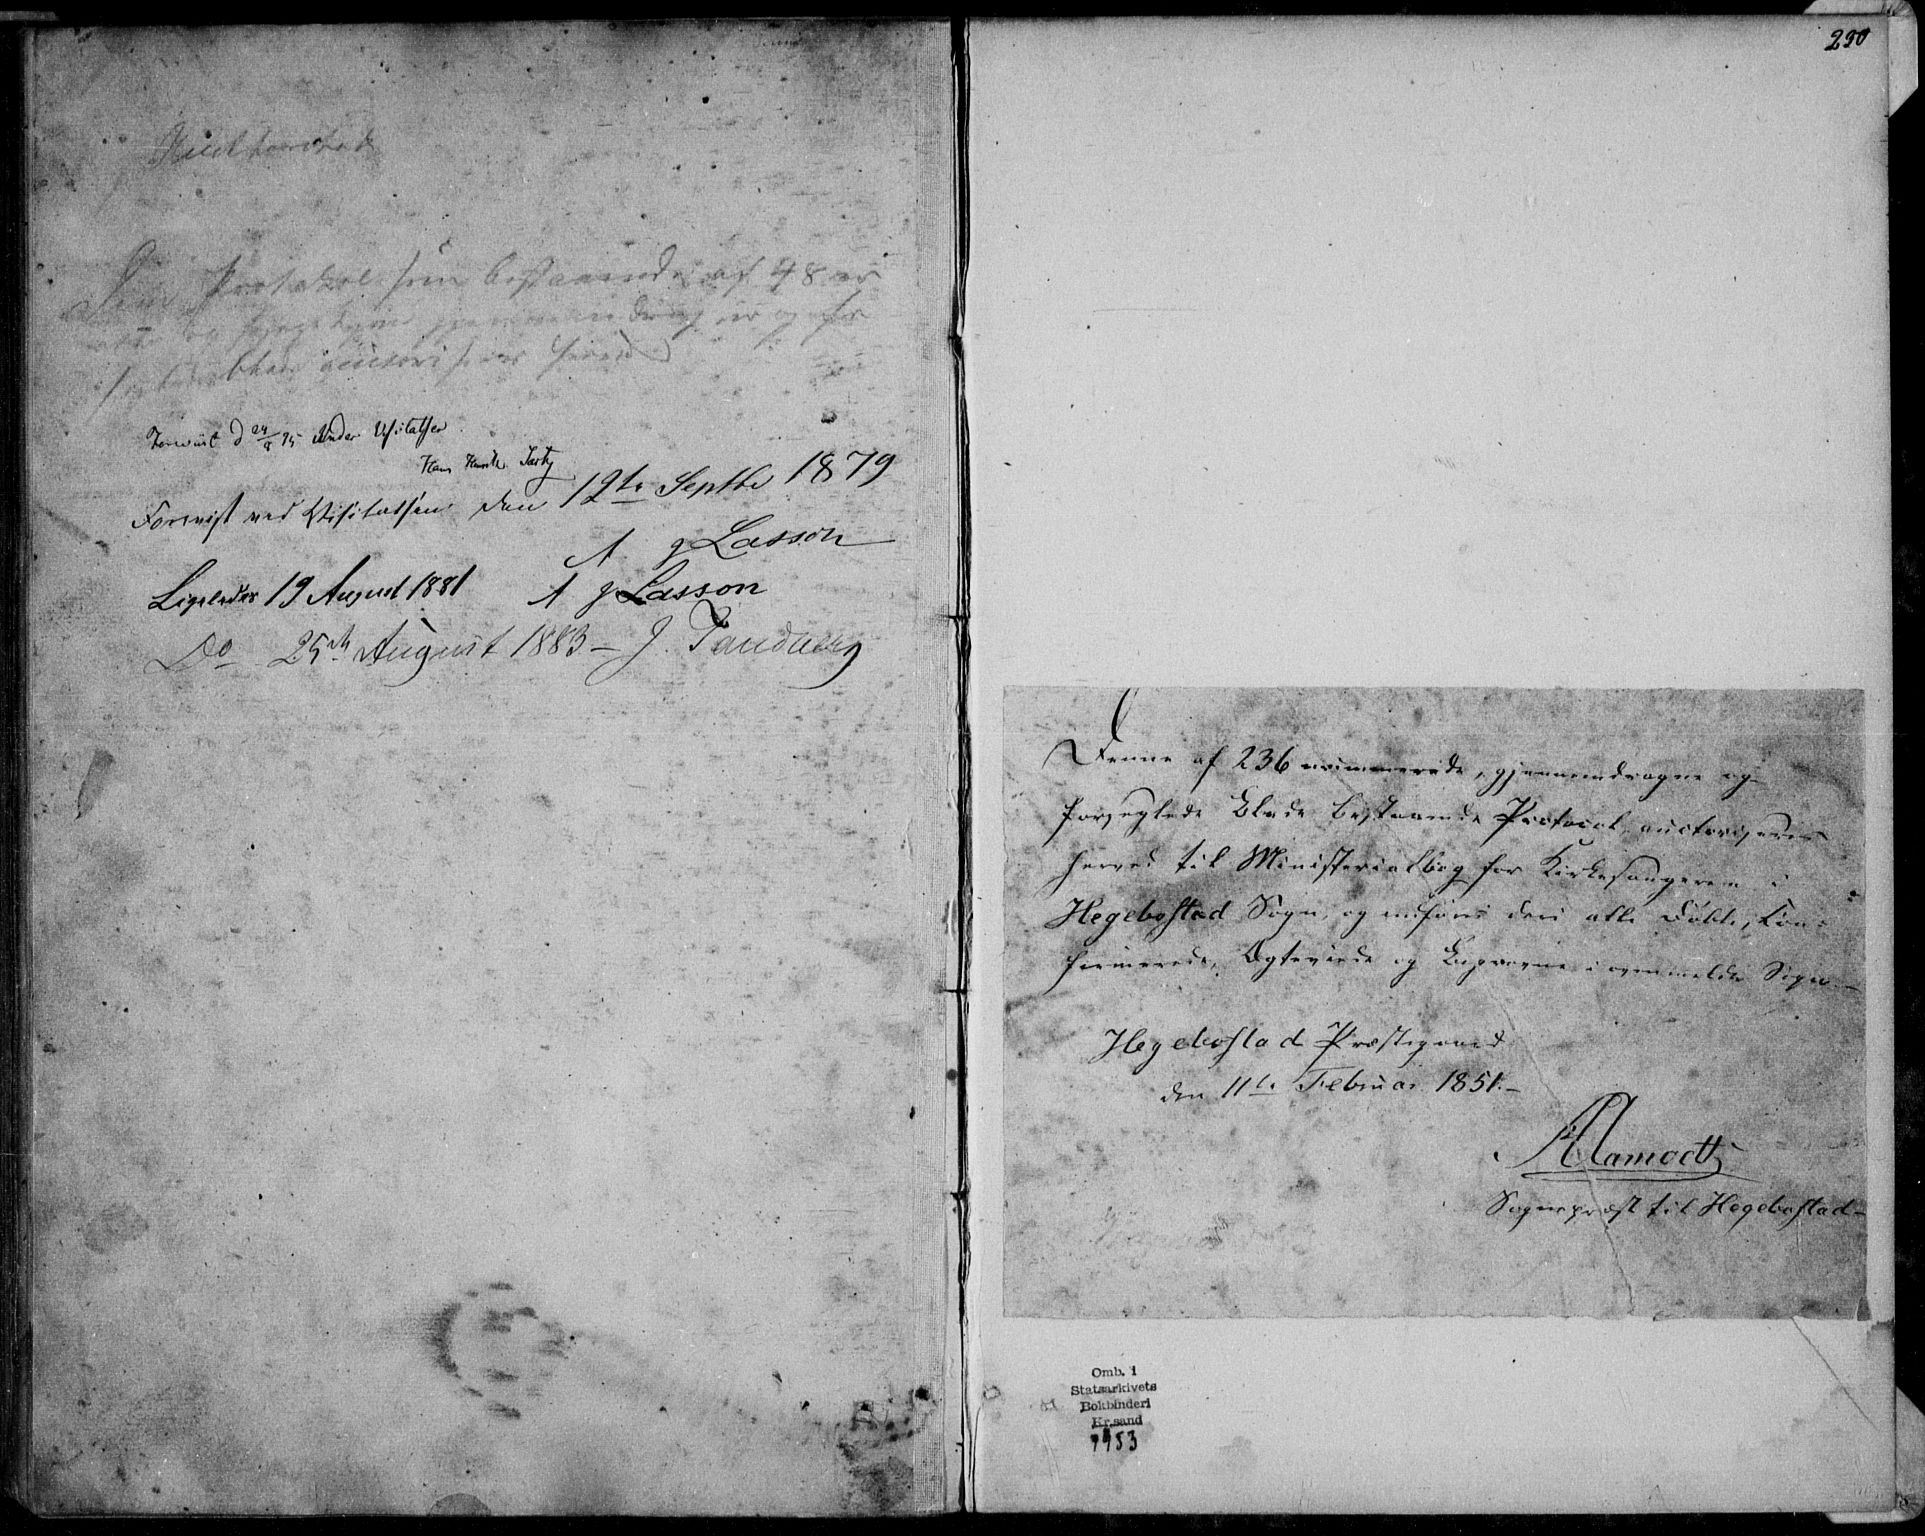 Denne Protokol som bestaaende af 48 
Forevist d 24/8 75 under Visitatsen
Forevist ved Visitatsen den 12te Septbr 1879
A g Lasson
Ligeledes 19 August 1881 A g Lasson
Do 25de August 1883 – J. Tandberg
230
Denne af 236 numererede, gjennemdragne og
forseglede Blade bestaaende Protocol auctoriseres
herved til Ministerialbog for Kirkesangeren i
Hegebostad Sogn, og indføres deri alle Døbte, Con-
firmerede, Ægteviede og Begravne i ovenmeldte Sogn –
Hegebostad Præstegaard
den 11te Februar 1851. –
Aamodt
Sognepræst til Hegebostad –
Omb. i
Statsarkivets
Bokbinderi
Kr.sand
1953